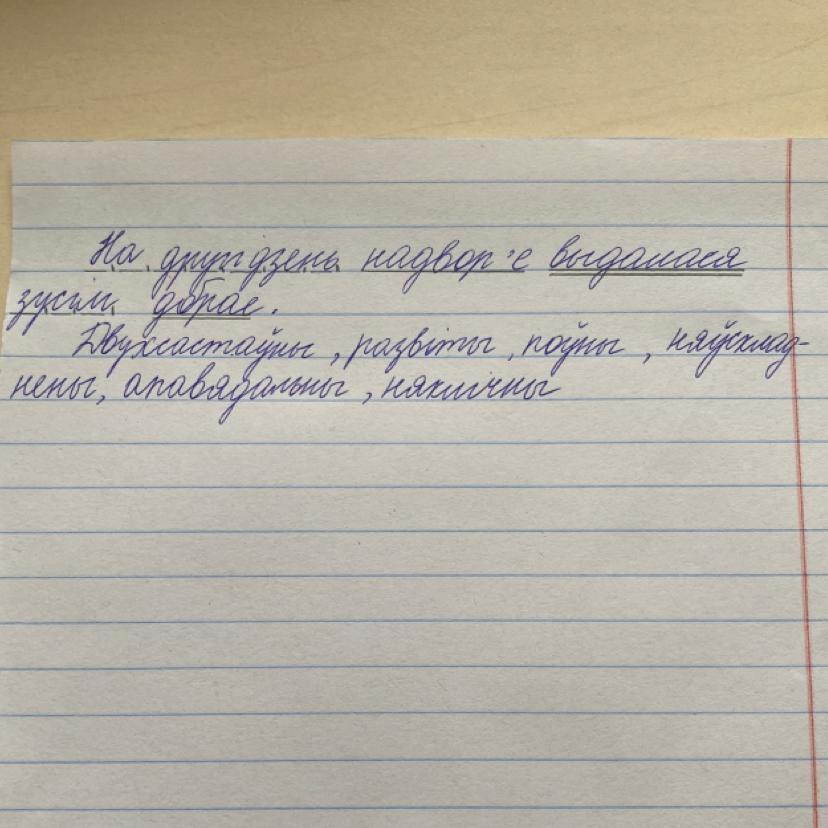 На другі дзень надвор'е выдалася
зусім добрае.
Двухсастаўны, развіты, поўны, няўсклад-
нены, апавядальны, няклічны